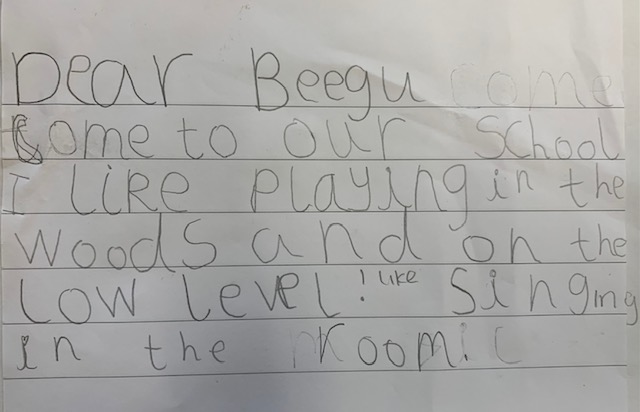 Dear Beegu
Come to our School
I like playing in the
woods and on the
Low level! like Singing
in the Room!